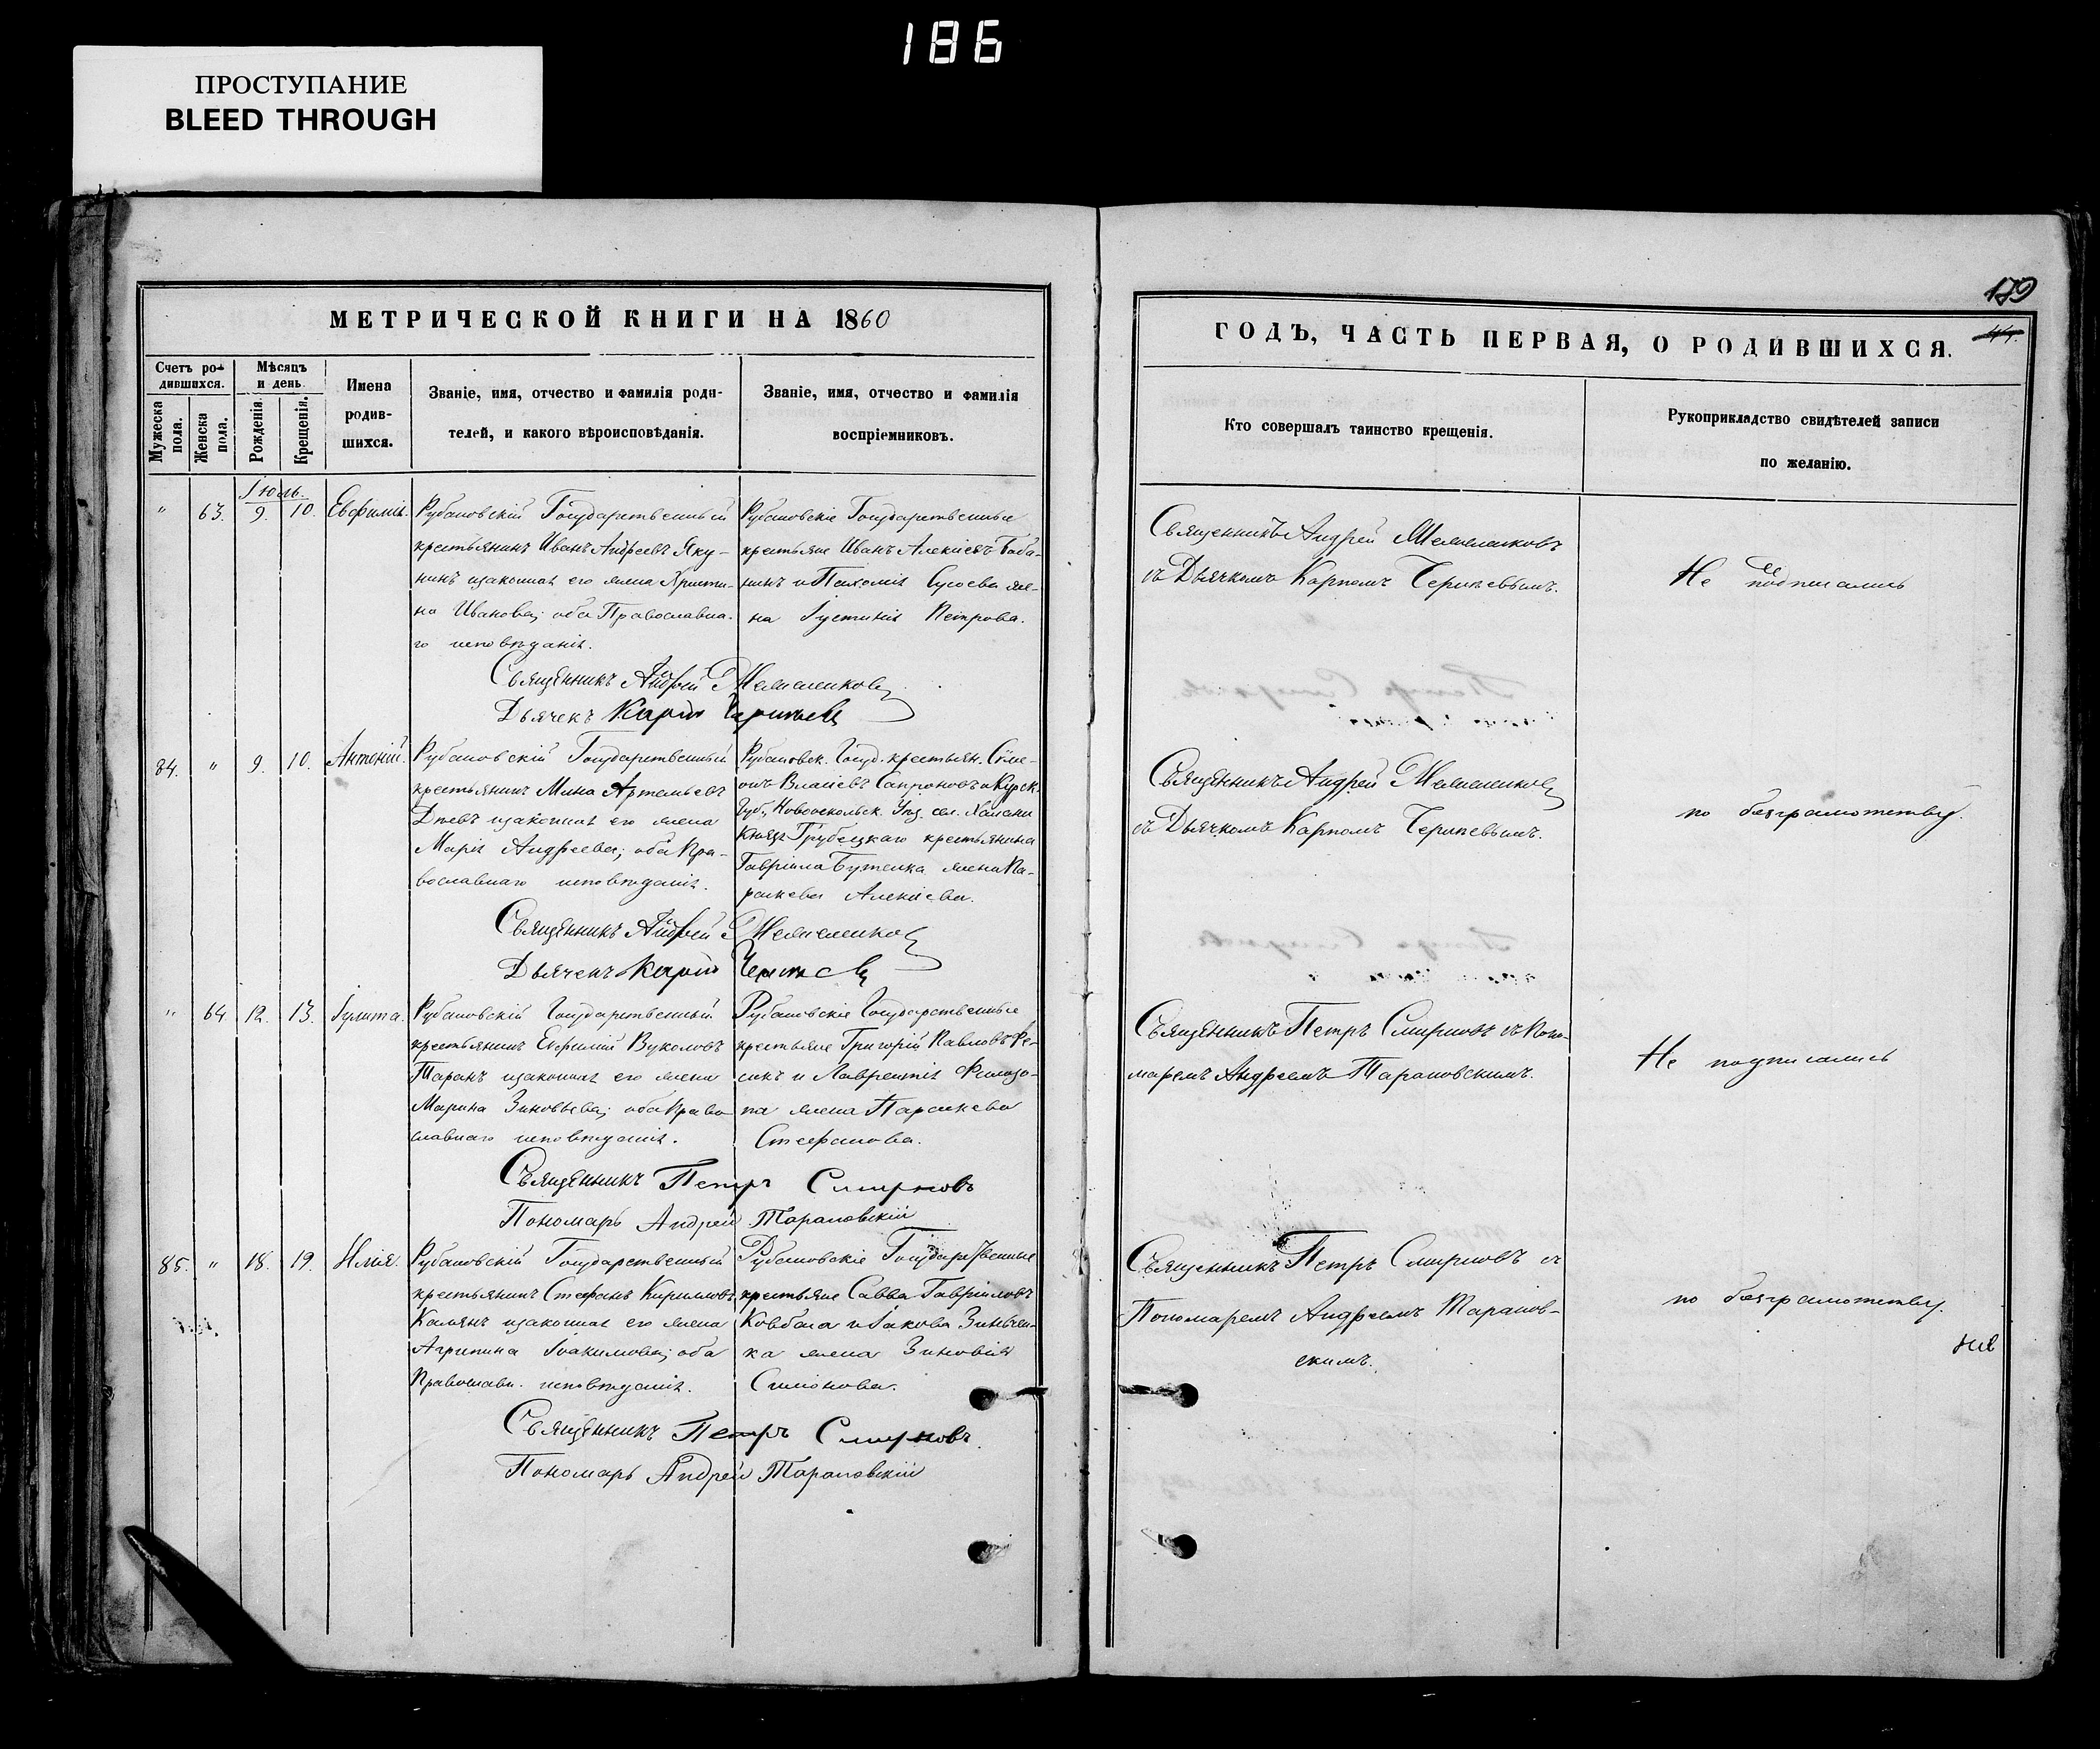 186
ПРОСТУПАНИЕ
BLEED THROUGH
МЕТРИЧЕСКОЙ КНИГИ НА 1860
Счетъ родившихся.
Мужеска пола.
Женска пола.
Мѣсяцъ и день
Рожденія.
Крещенія.
Имена родившихся.
Званіе, имя, отчество и фамилія родителей, и какого вѣроисповѣданія.
Званіе, имя, отчество и фамилія воспріемниковъ.
Іюль.
" 63. 9. 10. Евфимія.
Рубановскій Государственный
крестьянинъ Иванъ Андреевъ Яку-
нинъ изаконная его жена Христи-
на Иванова; оба Православна-
го исповѣданія.
Рубановскіе Государственные
крестьяне Иванъ Алексіевъ Баба-
нинъ и Пахомія Сусоева же-
на Іустинія Петрова.
Священникъ Андрей
Дьячекъ Карпъ
84. " 9. 10. Антоній.
Рубановскій Государственный
крестьянинъ Мина Артемьевъ
Дневъ изаконная его жена
Марія Андреева; оба Пра-
вославнаго исповѣданія.
Рубановск. Госуд. крестьян. Симе-
онъ Власіевъ Сапроновъ и Курск.
Губ., Новооскольск. Уѣз. сел. Халани
Князя Трубецкаго крестьянина
Гавріила Бутенка жена Па-
раскева Алексіева.
Священникъ Андрей
Дьячекъ Карпъ
" 64 12. 13. Іулита.
Рубановскій Государственный
крестьянинъ Евфимій Вуколовъ
Таранъ изаконная его жена
Марина Зиновьева; оба Право
славнаго исповѣданія.
Рубановскіе Государственные
крестьяне Григорій Павловъ Фе-
сикъ и Лаврентія Филозо-
па жена Параскева
Стефанова.
Священникъ Петръ Смирновъ
Пономарь Андрей Тарановскій
85. " 18. 19. Илія.
Рубановскій Государственный
крестьянинъ Стефанъ Кирилловъ
Калянъ изаконная его жена
Агрипина Іоакимова; оба
Православн. исповѣданія.
Рубановскіе Государственные
крестьяне Савва Гавріиловъ
Ковбаса и Іакова Зинчен-
ка жена Зиновія
Симонова.
Священникъ Петръ Смирновъ
Пономарь Андрей Тарановскій
179
ГОДЪ, ЧАСТЬ ПЕРВАЯ, О РОДИВШИХСЯ.
Кто совершалъ таинство крещенія.
Рукоприкладство свидѣтелей записи
по желанію.
Священникъ Андрей
съ Дьячкомъ Карпомъ
Не подписались
Священникъ Андрей
съ Дьячкомъ Карпомъ
по безграмотству.
Священникъ Петръ Смирновъ съ Поно-
маремъ Андреемъ Тарановскимъ.
Не подписались
Священникъ Петръ Смирновъ съ
Пономаремъ Андреемъ Таранов-
скимъ.
по безграмотству.